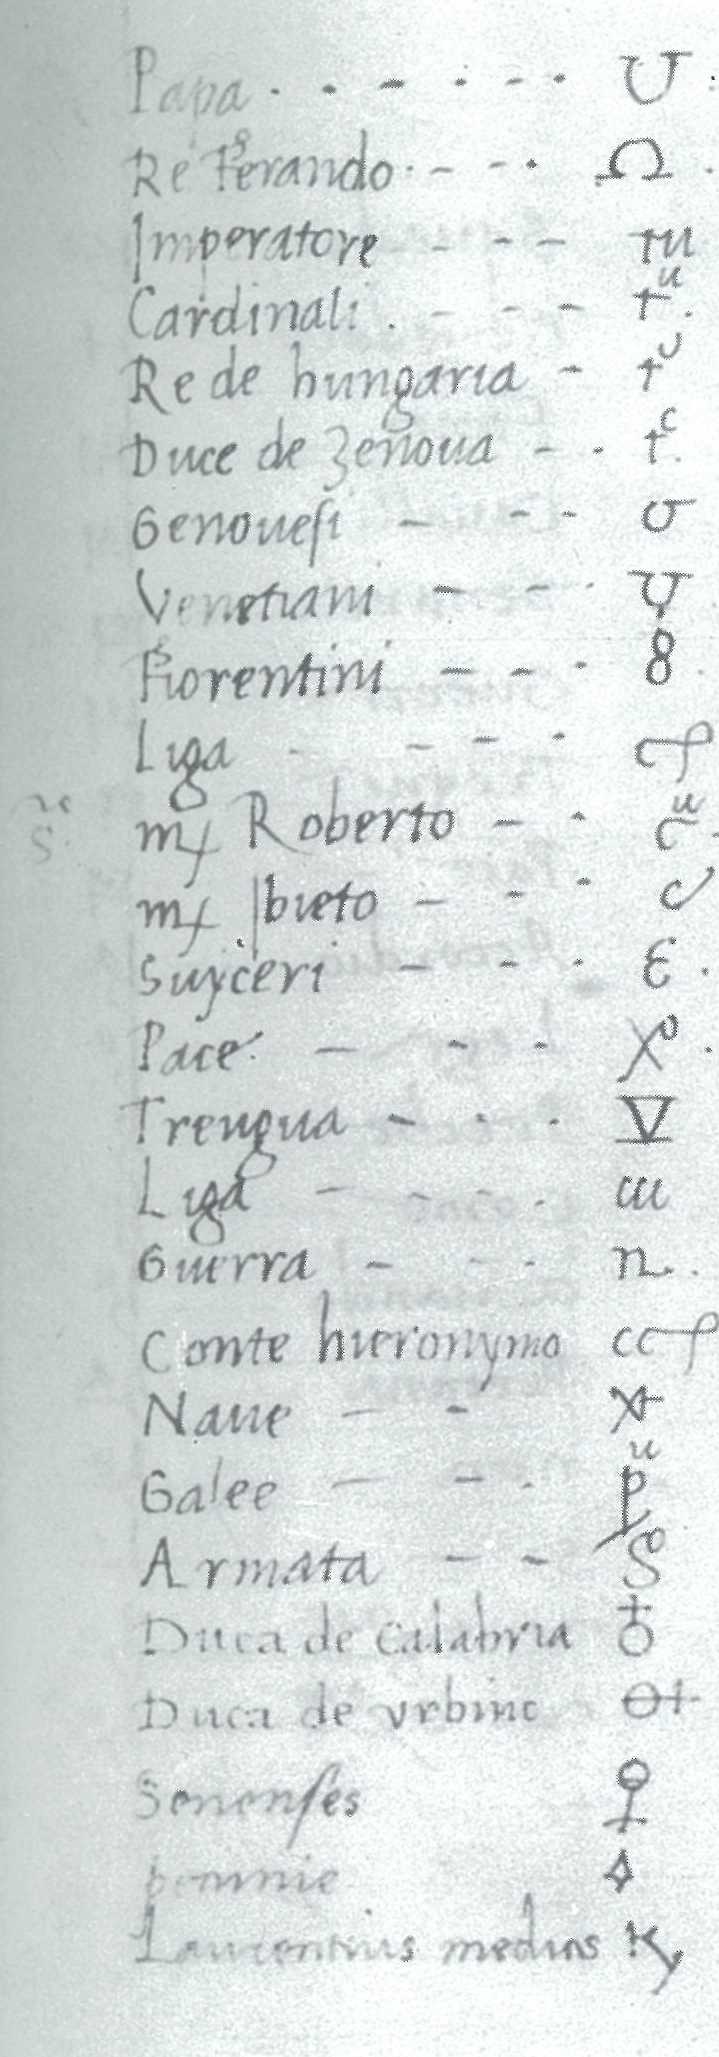 Papa · - - - - · Ʊ
Re Ferando · - - · Ω
Imperatore - - - †u
Cardinali . - - - †ᵘ
Re de hungaria - †
Duce de Zenoua - · †ᶜ
Genouesi - - - σ
Venetiani - - ·
Fiorentini - - · 8
Liga - - - ·
mf Roberto - · cᵘ
mf Ibieto - - ·
Suyceri - - · ε
Pace - - - X⁰
Treugua - · · V
Liga - - - · uu
Guerra - - · n
Conte hieronymo ccf
Naue - -
Galee - - · pᵘ
Armata - - S⁰
Duca de calabria ♁
Duca de vrbino
Senenses ♀
Laurentius medices